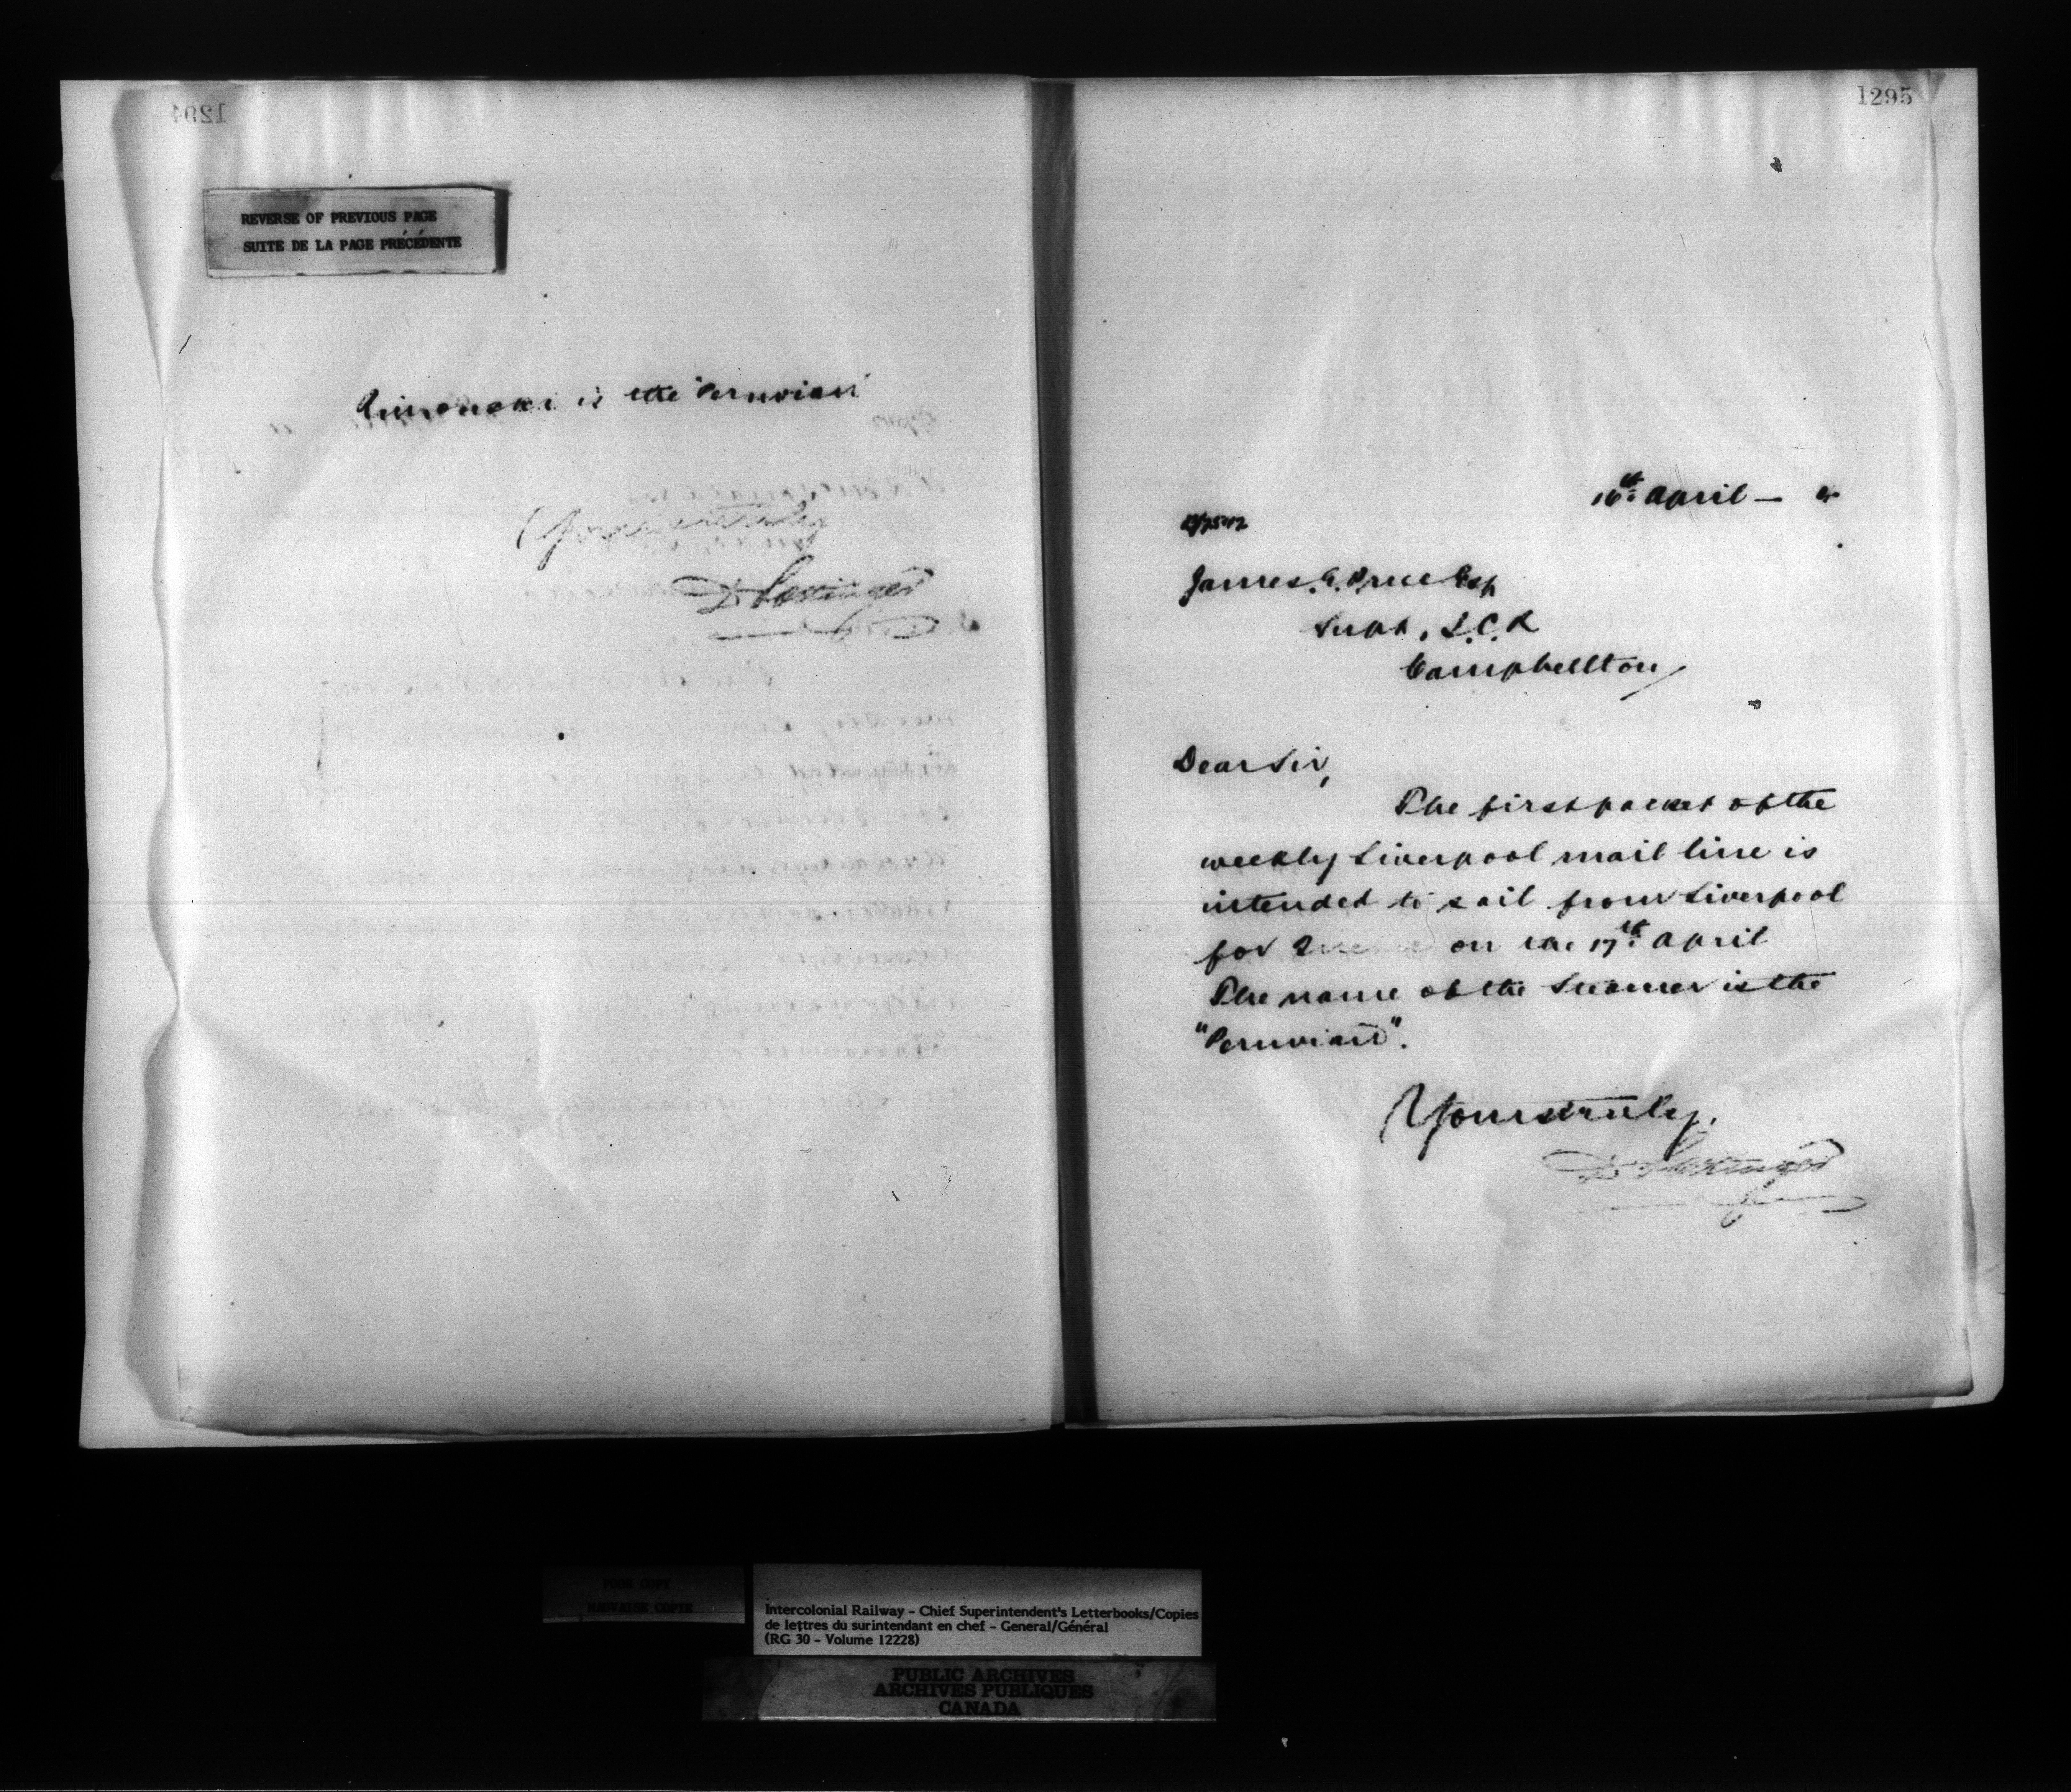 1294
REVERSE OF PREVIOUS PAGE
SUITE DE LA PAGE PRÉCÉDENTE
Rimouski is the "Peruvian"
Yours truly
D Pottinger
1295
16th April —
James. E. Price Esq
Supt, I.C.R
Campbellton
Dear Sir,
The first packet of the
weekly Liverpool mail line is
intended to sail from Liverpool
for on the 17th April
The name of the Steamer is the
"Peruvian".
Yours truly,
D Pottinger
POOR COPY
MAUVAISE COPIE
Intercolonial Railway – Chief Superintendent's Letterbooks/Copies
de lettres du surintendant en chef – General/Général
(RG 30 – Volume 12228)
PUBLIC ARCHIVES
ARCHIVES PUBLIQUES
CANADA